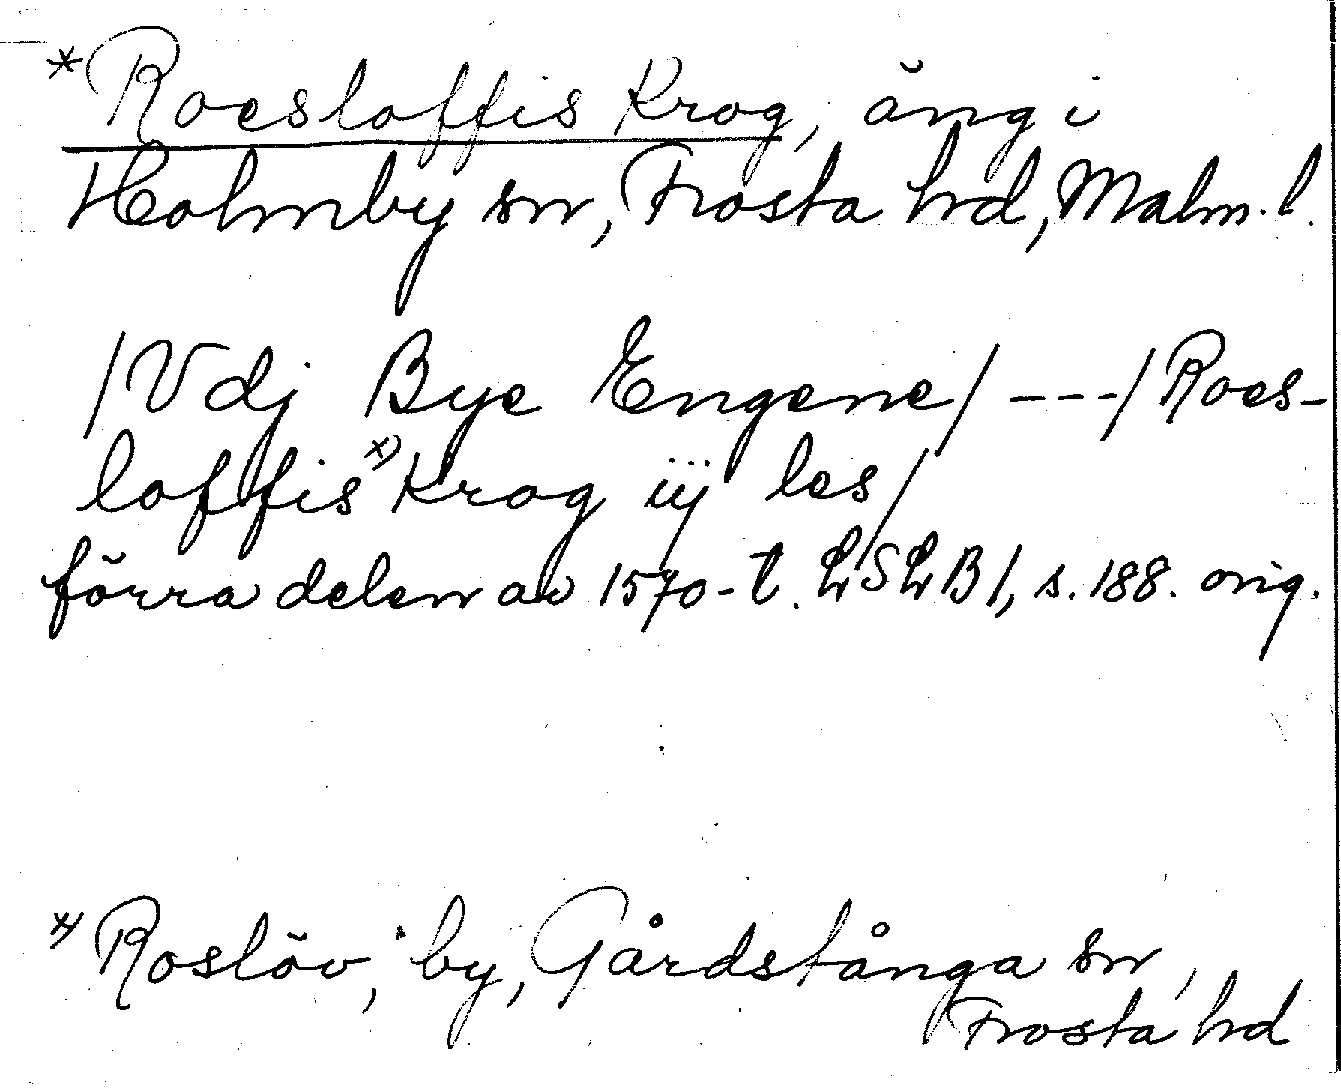 *Roesloffis Krog, äng i
Holmby sn, Frosta hrd, Malm. l.
/Vdj Bye Engene/ ---/Roes-
loffis x) Krog iij les/
förra delen av 1570-t. LSLB I, s. 188. orig.
x) Roslöv, by, Gårdstånga sn,
Frosta hrd